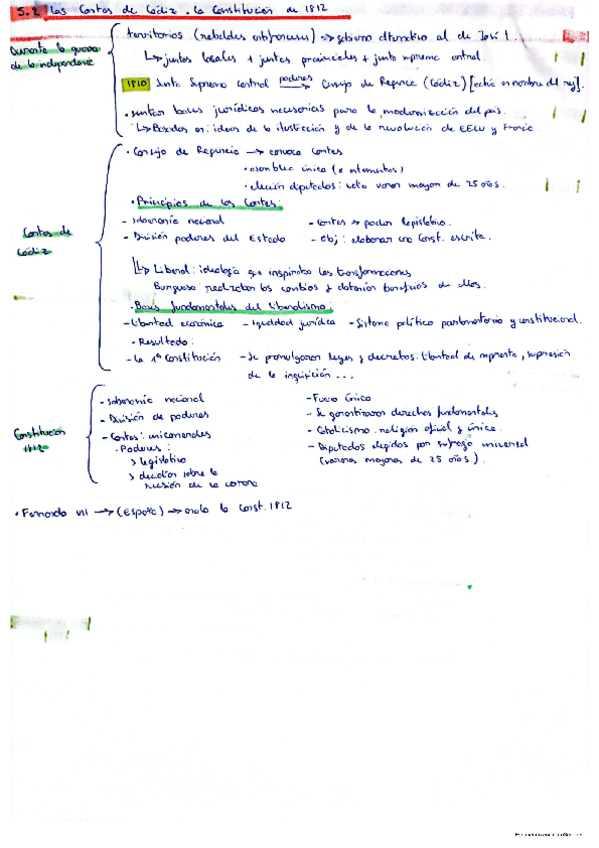 5.2 Las Cortes de Cádiz. La Constitución de 1812
Durante la guerra de la independencia
territorios (rebeldes antifranceses) => gobierno alternativo al de José I.
↳ juntas locales + juntas provinciales + junta suprema central.
1810 Junta Suprema Central poderes → Consejo de Regencia (Cádiz) [actúa en nombre del rey].
• sentar bases jurídicas necesarias para la modernización del país.
↳ Basadas en: ideas de la ilustración y de la revolución de EEUU y Francia
Cortes de Cádiz
• Consejo de Regencia → convoca Cortes
• asamblea única (x estamentos)
• elección diputados: voto varones mayores de 25 años.
• Principios de las Cortes:
- soberanía nacional - Cortes → poder legislativo.
- División poderes del Estado - Obj: elaborar una Const. escrita.
↳ Liberal: ideología que inspiraba las transformaciones
Burguesía: realizaban los cambios y obtenían beneficios de ellos.
• Bases fundamentales del liberalismo:
- Libertad económica - Igualdad jurídica - Sistema político parlamentario y constitucional.
• Resultado:
- La 1ª Constitución - Se promulgaron leyes y decretos: libertad de imprenta, supresión
de la inquisición ...
Constitución 1812
- soberanía nacional - Fuero único
- División de poderes - Se garantizaron derechos fundamentales
- Cortes: unicamerales - Catolicismo: religión oficial y única.
• Poderes: - Diputados elegidos por sufragio universal
> legislativo (varones mayores de 25 años).
> decisión sobre la
sucesión de la corona
• Fernando VII → (España) → anula la Const. 1812